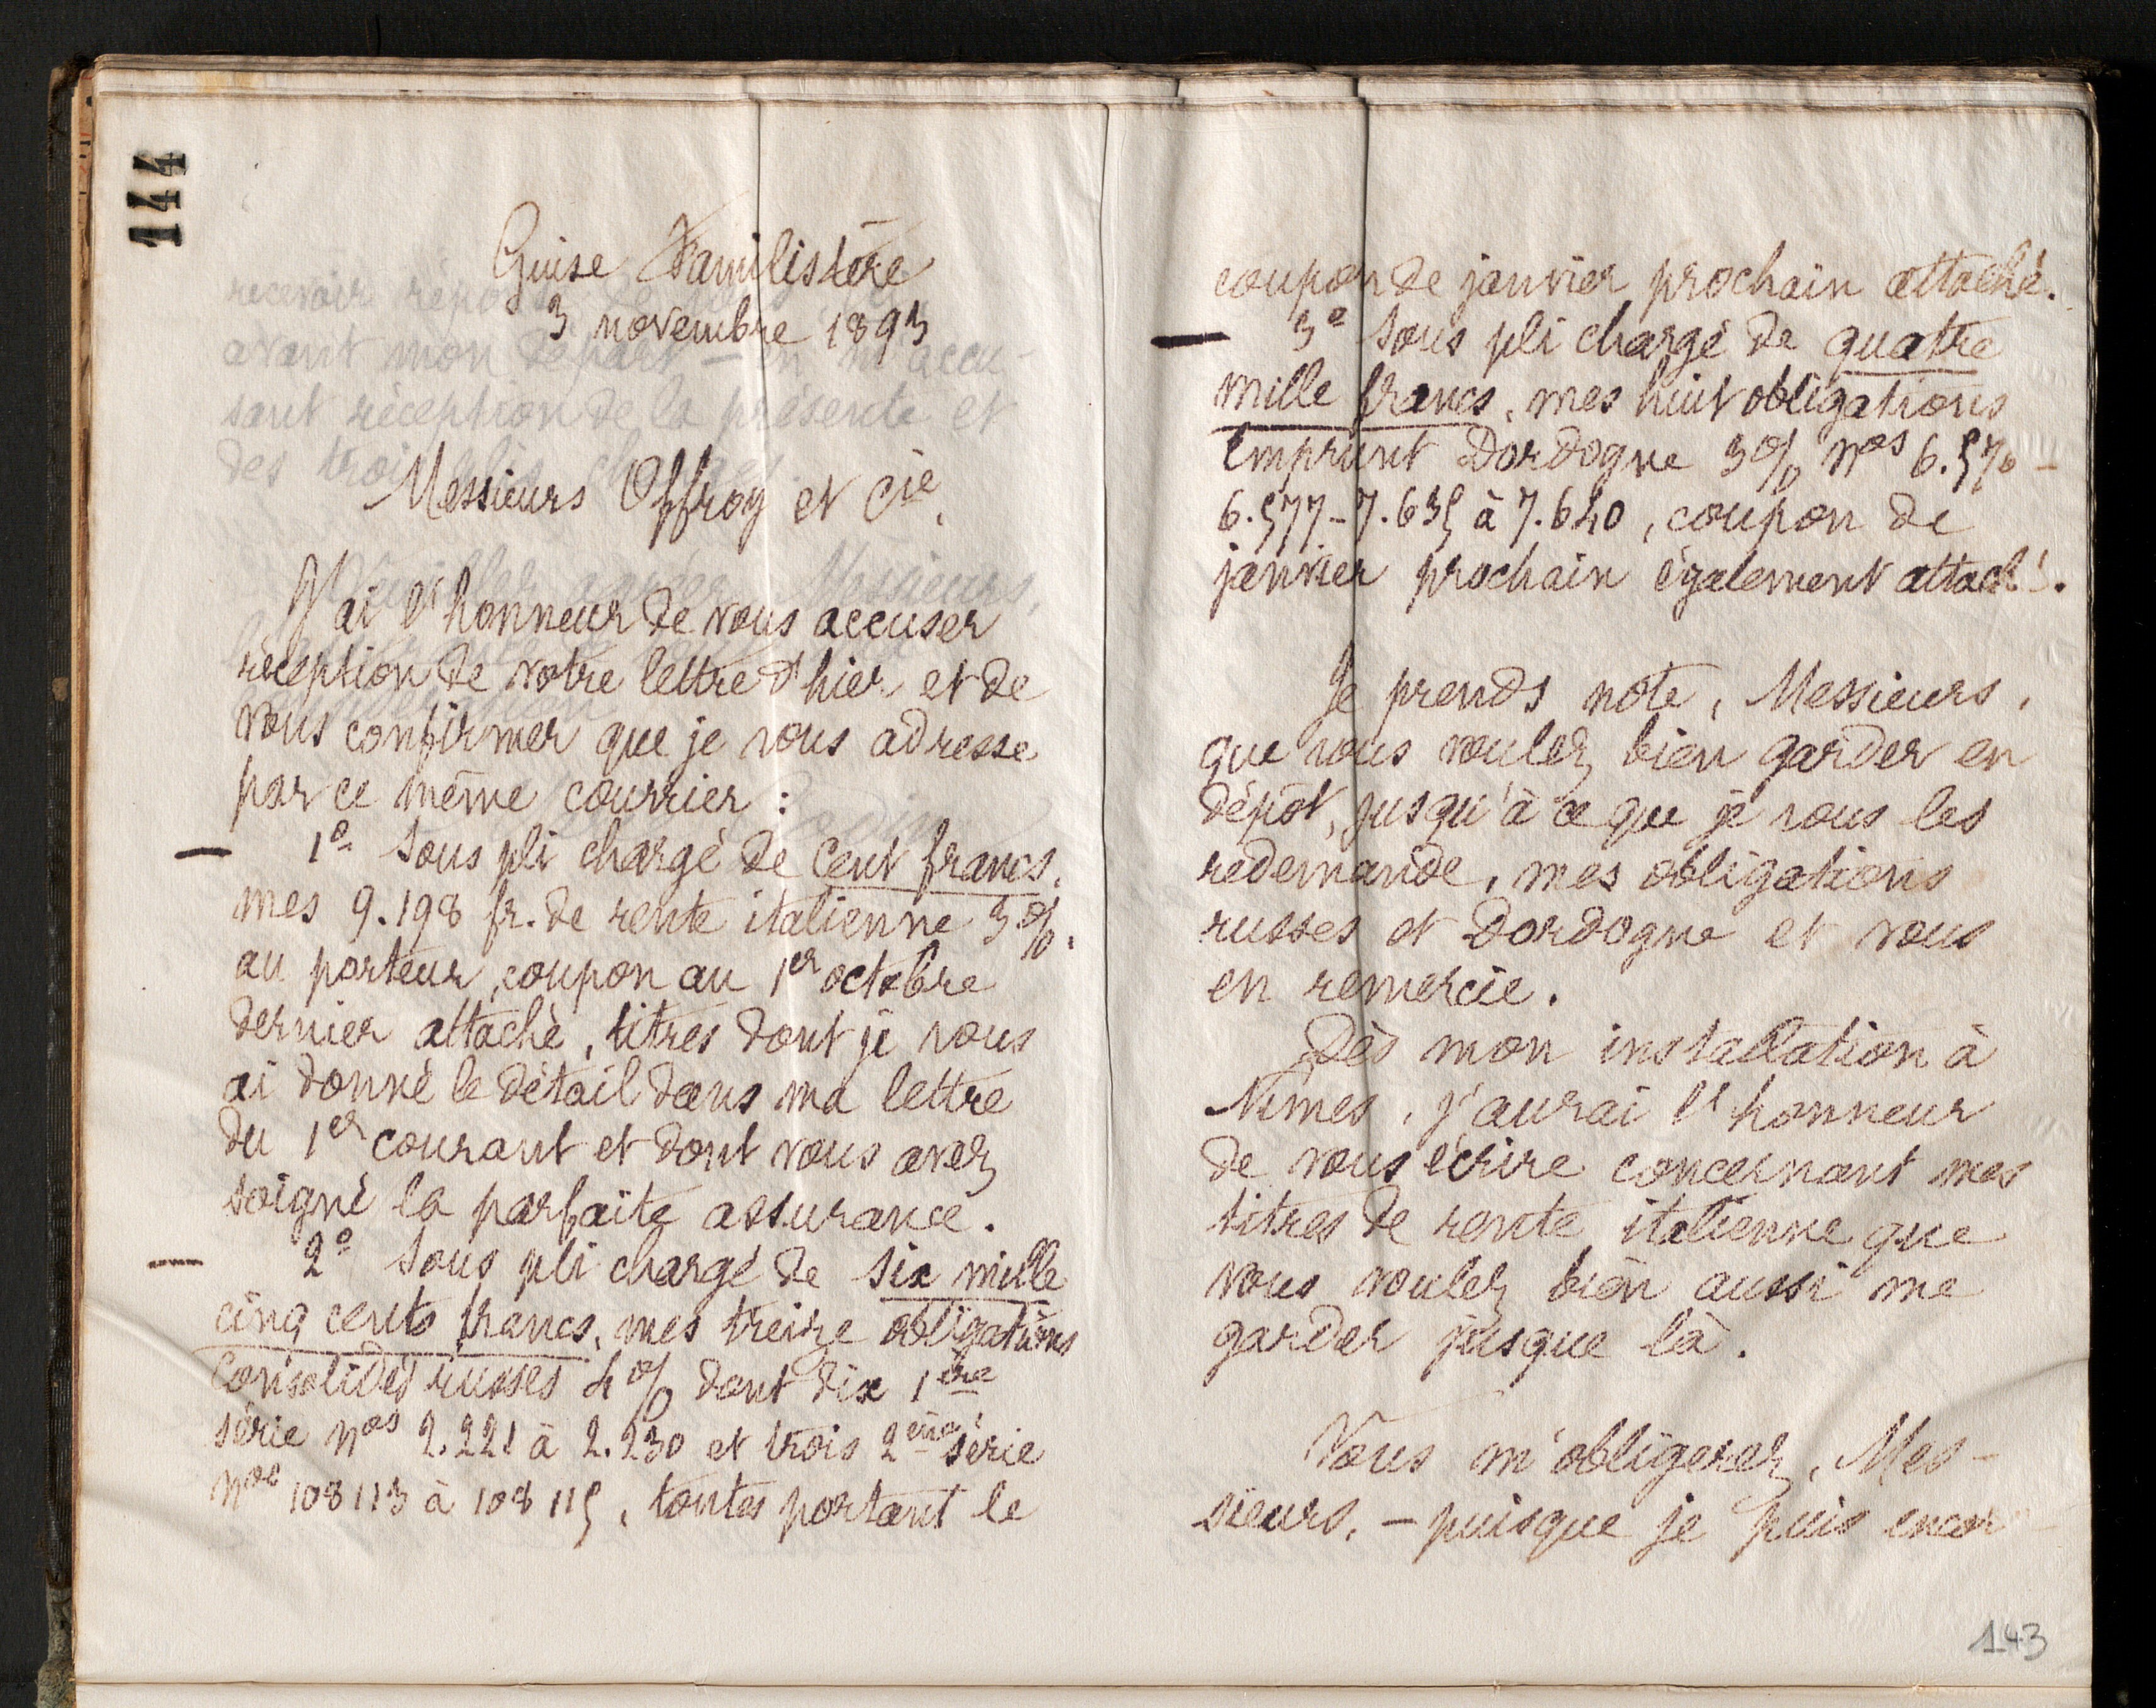 144
Guise Familistère
3 novembre 1893
Messieurs Offroy et Cie,
J'ai l'honneur de vous accuser
réception de votre lettre d'hier et de
vous confirmer que je vous adresse
par ce même courrier :
— 1o Sous pli chargé de Cent francs,
mes 9.198 fr. de rente italienne 3%,
au porteur, coupon au 1er octobre
dernier attaché, titres dont je vous
ai donné le détail dans ma lettre
du 1er courant et dont vous avez
soigné la parfaite assurance.
— 2o Sous pli chargé de six mille
cinq cents francs, mes treize obligations
Consolidés russes 4% dont dix 1ère
série Nos 2.221 à 2.230 et trois 2ème série
Nos 108113 à 108115, toutes portant le
coupon de janvier prochain attaché.
— 3o Sous pli chargé de quatre
mille francs, mes huit obligations
Emprunt Dordogne 3% Nos 6.576 -
6.577 - 7.635 à 7.640, coupon de
janvier prochain également attaché.
Je prends note, Messieurs,
que vous voulez bien garder en
dépôt, jusqu'à ce que je vous les
redemande, mes obligations
russes et Dordogne et vous
en remercie.
Dès mon installation à
Nîmes, j'aurai l'honneur
de vous écrire concernant mes
titres de rente italienne que
vous voulez bien aussi me
garder jusque là.
Vous m'obligerez, Mes-
sieurs, - puisque je puis encor
143